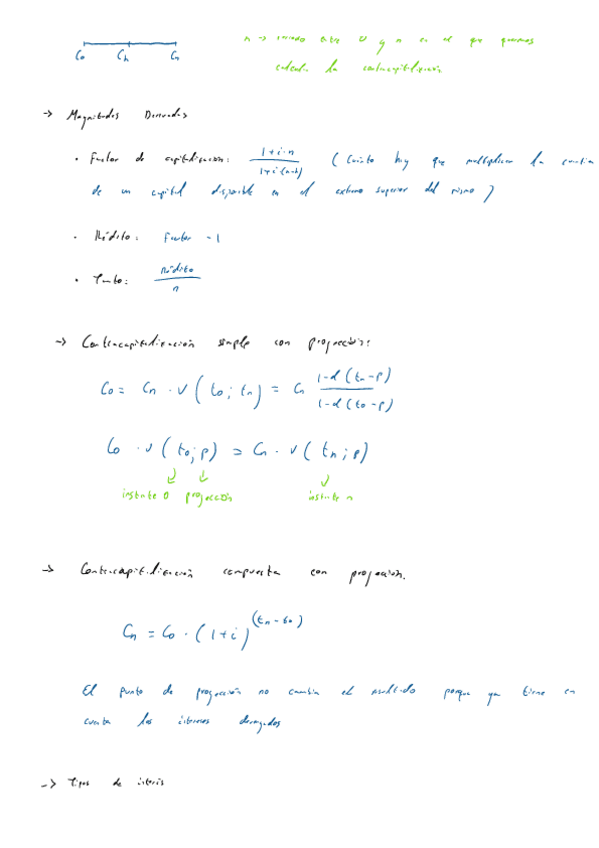 n → periodo entre 0 y n en el que queremos
C₀ Cₕ Cₙ
calcular la contracapitalización
→ Magnitudes Derivadas
• Factor de capitalización: (1+i·n)/(1+i·(n-h)) (Cuánto hay que multiplicar la cuantía
de un capital disponible en el extremo superior del mismo)
• Rédito: Factor -1
• Tanto: Rédito/n
→ Contracapitalización simple con proyección:
C₀ = Cₙ · v(t₀; tₙ) = Cₙ (1-d(tₙ-p))/(1-d(t₀-p))
C₀ · v(t₀; p) = Cₙ · v(tₙ; p)
instante 0 proyección instante n
→ Contracapitalización compuesta con proyección.
Cₙ = C₀ · (1+i)^(tₙ-t₀)
El punto de proyección no cambia el resultado porque ya tiene en
cuenta los intereses devengados
→ Tipos de interés